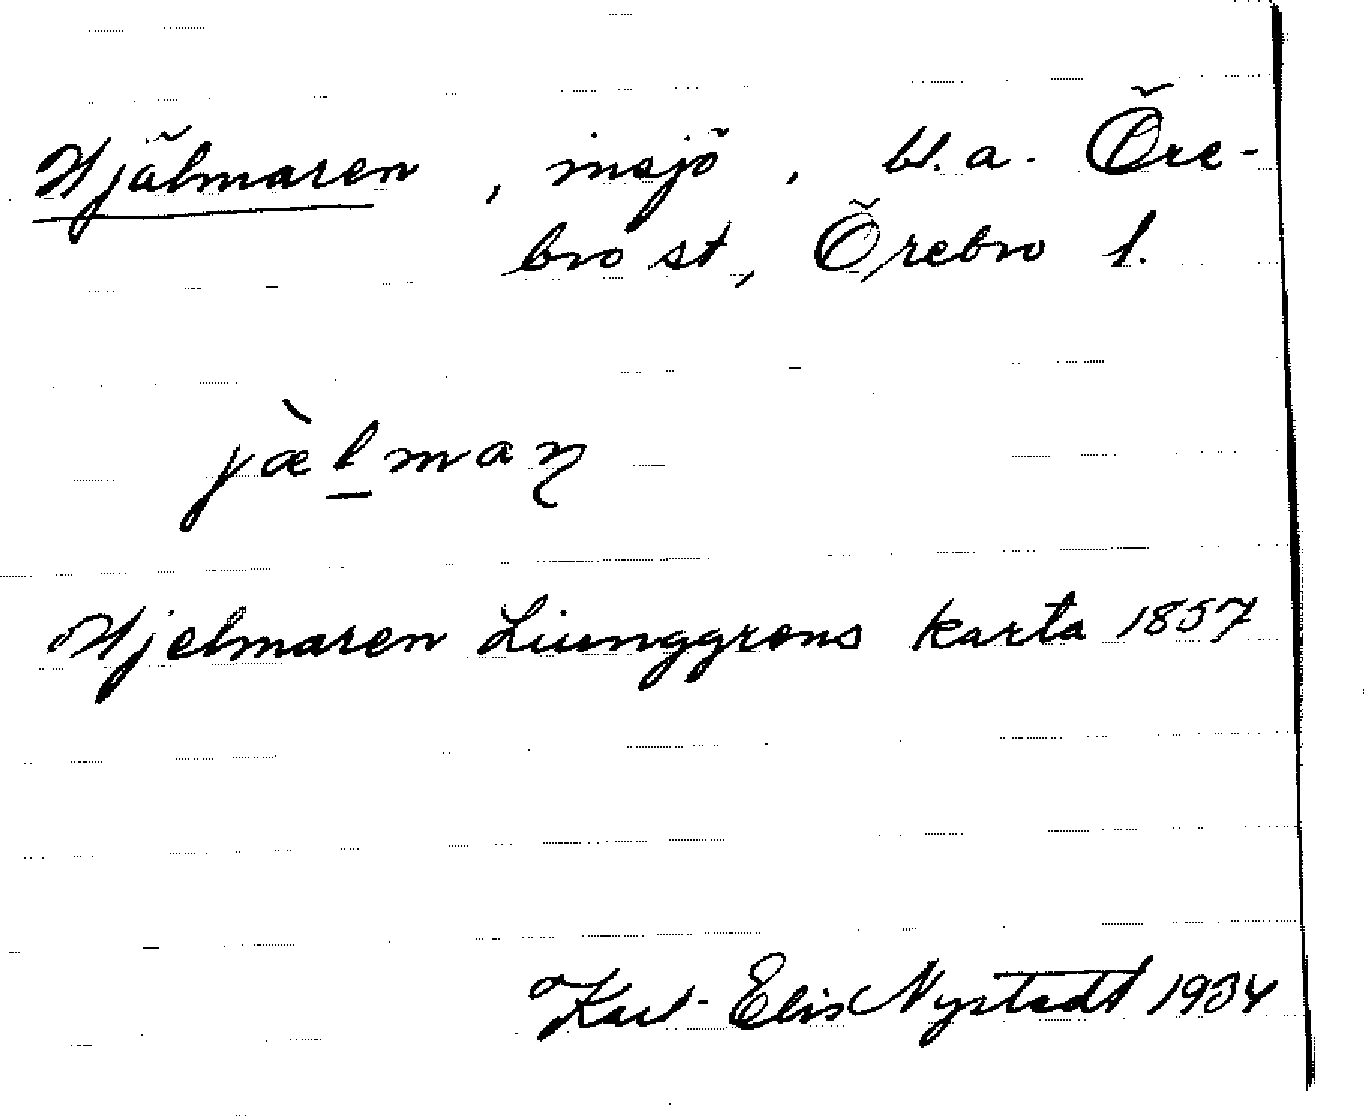 Hjälmaren, insjö, bl.a. Öre-
bro st, Örebro l.
jæ̀l̲maɳ
Hjelmaren Liunggrens karta 1857
Karl-Elis Nystedt 1934